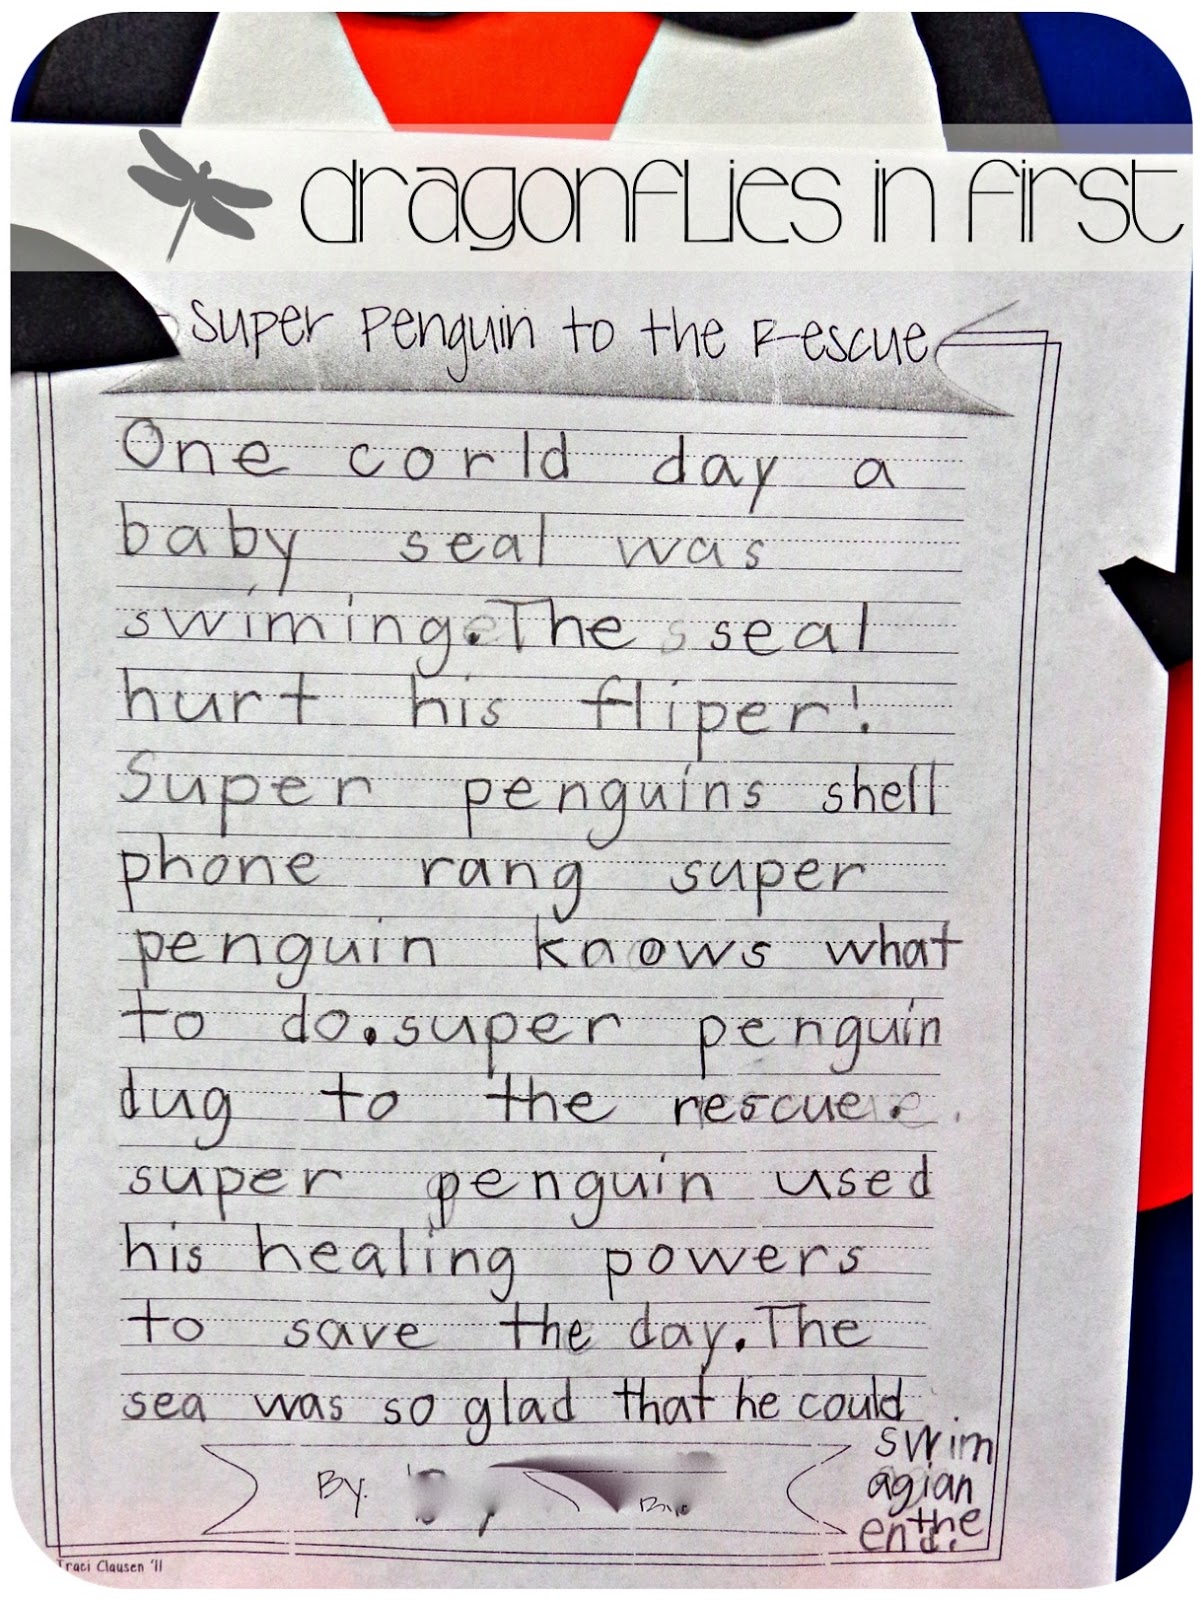 dragonflies in first
Super Penguin to the Rescue
One corld day a
baby seal was
swiming. The seal
hurt his fliper!
Super penguins shell
phone rang super
penguin knows what
to do. super penguin
dug to the rescue.
super penguin used
his healing powers
to save the day. The
sea was so glad that he could
swim
agian
the
end.
By.
Traci Clausen '11